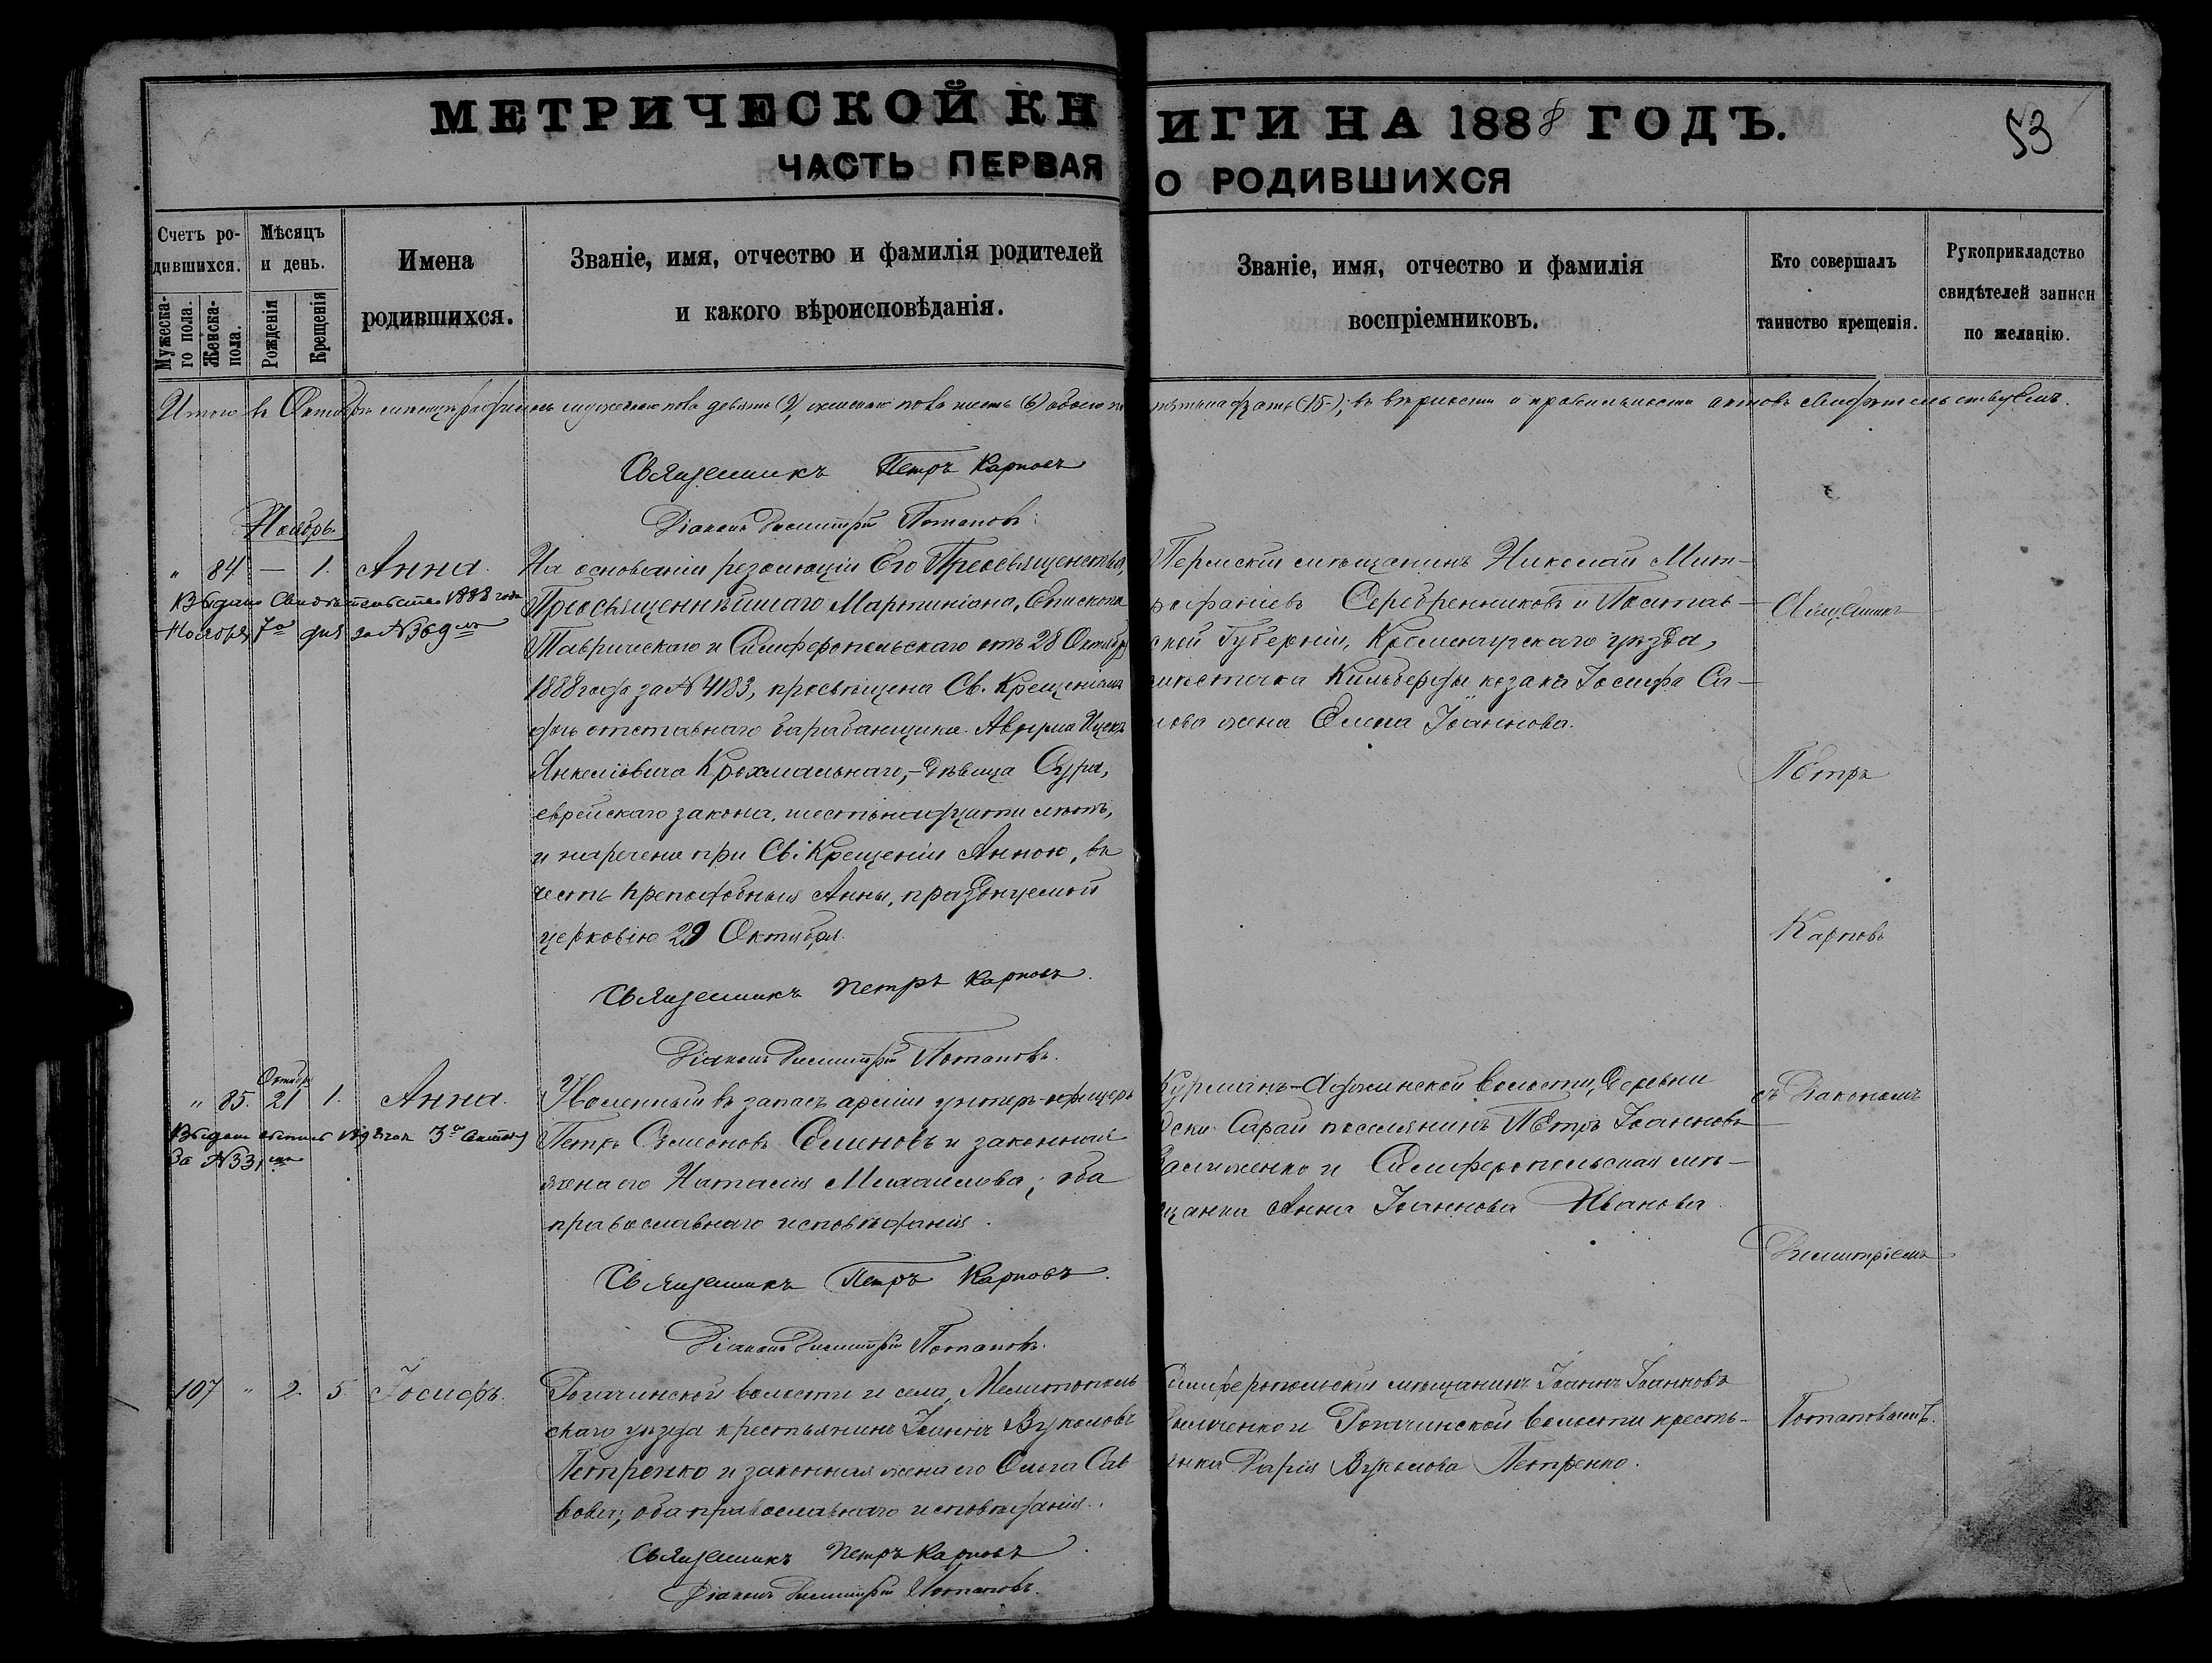 МЕТРИЧЕСКОЙ КН ИГИ НА 1888 ГОДЪ.
53
ЧАСТЬ ПЕРВАЯ О РОДИВШИХСЯ
Счетъ ро-
дившихся.
Мужеска-
го пола.
Женска-
пола.
Мѣсяцъ
и день.
Рожденія
Крещенія
Имена
родившихся.
Званіе, имя, отчество и фамилія родителей
и какого вѣроисповѣданія.
Званіе, имя, отчество и фамилія
воспріемниковъ.
Кто совершалъ
таинство крещенія.
Рукоприкладство
свидѣтелей записи
по желанію.
Итого въ Октябрѣ мѣсяцѣ родилось мужескаго пола девять (9), женскаго пола шесть (6) обоего по пятьнадцать (15); въ вѣрности и правильности актовъ свидѣтельствуемъ.
Священникъ Петръ Карповъ
Діаконъ Димитрій Потаповъ.
Ноябрь.
" 84 — 1. Анна.
Выдано свидѣтельство 1888 года
Ноября 7го дня за № 369мъ
На основаніи резолюціи Его Преосвященства,
Преосвященнѣйшаго Мартиніана, Епископа
Таврическаго и Симферопольскаго отъ 28 Октябр
1888 года за № 4183, просвѣщена Св. Крещеніемъ
дочь отставнаго барабанщика Аврума Ицекъ
Янкеліовича Крохмальнаго, – дѣвица Сура,
еврейскаго закона, шестьнадцати лѣтъ,
и наречена при Св. Крещеніи Анною, въ
честь преподобныя Анны, празднуемой
церковію 29 Октября.
Священникъ Петръ Карповъ.
Діаконъ Димитрій Потаповъ.
Пермскій мѣщанинъ Николай Мит-
рофаніевъ Серебренниковъ и Полтав-
ской Губерніи, Кременчугскаго уѣзда,
мѣстечка Кильберды козака Іосифа Са-
лова жена Елена Іоаннова.
Священникъ
Петръ
Карповъ
Октябр
" 85. 21 1. Анна.
за № 331мъ
Уволенный въ запасъ арміи унтеръ-офицеръ
Петръ Сѵмеоновъ Семеновъ и законная
жена его Наталія Михаилова; оба
православнаго исповѣданія.
Священникъ Петръ Карповъ.
Діаконъ Димитрій Потаповъ.
Курманъ- волости, деревни
Сарай поселянинъ Петръ Іоанновъ
и Симферопольская мѣ-
щанка Анна Іоаннова Иванова
съ Діакономъ
Димитріемъ
Потаповымъ.
107 " 2. 5. Іосифъ.
Рогачинской волости и села, Мелитополь
скаго уѣзда крестьянинъ Іоаннъ Вуколовъ
Петренко и законная жена его Ольга Сав
вова; оба православнаго исповѣданія.
Священникъ Петръ Карповъ
Діаконъ Димитрій Потаповъ.
Симферопольскій мѣщанинъ Іоаннъ Іоанновъ
и Рогачинской волости кресть-
янка Дарія Вуколова Петренко.